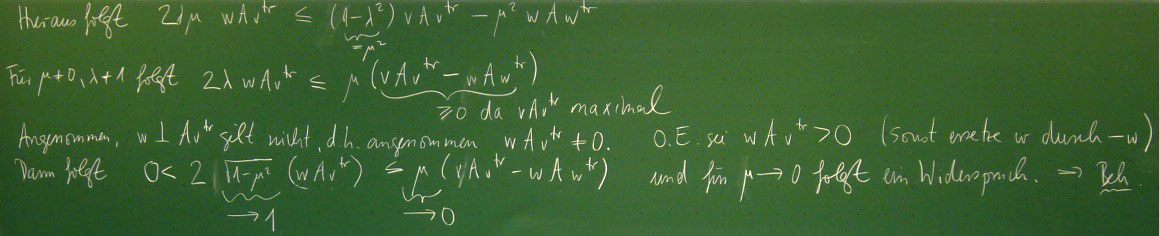 Hieraus folgt 2λμ wAv^tr ≤ (1-λ²) vAv^tr - μ² wAw^tr
=μ²
Für μ≠0, λ≠1 folgt 2λ wAv^tr ≤ μ (vAv^tr - wAw^tr)
≥0 da vAv^tr maximal
Angenommen, w ⊥ Av^tr gilt nicht, d.h. angenommen wAv^tr ≠ 0. O.E. sei wAv^tr > 0 (sonst ersetze w durch -w)
Dann folgt 0 < 2 √(1-μ²) (wAv^tr) ≤ μ (vAv^tr - wAw^tr) und für μ → 0 folgt ein Widerspruch. ⇒ Beh.
→ 1 → 0